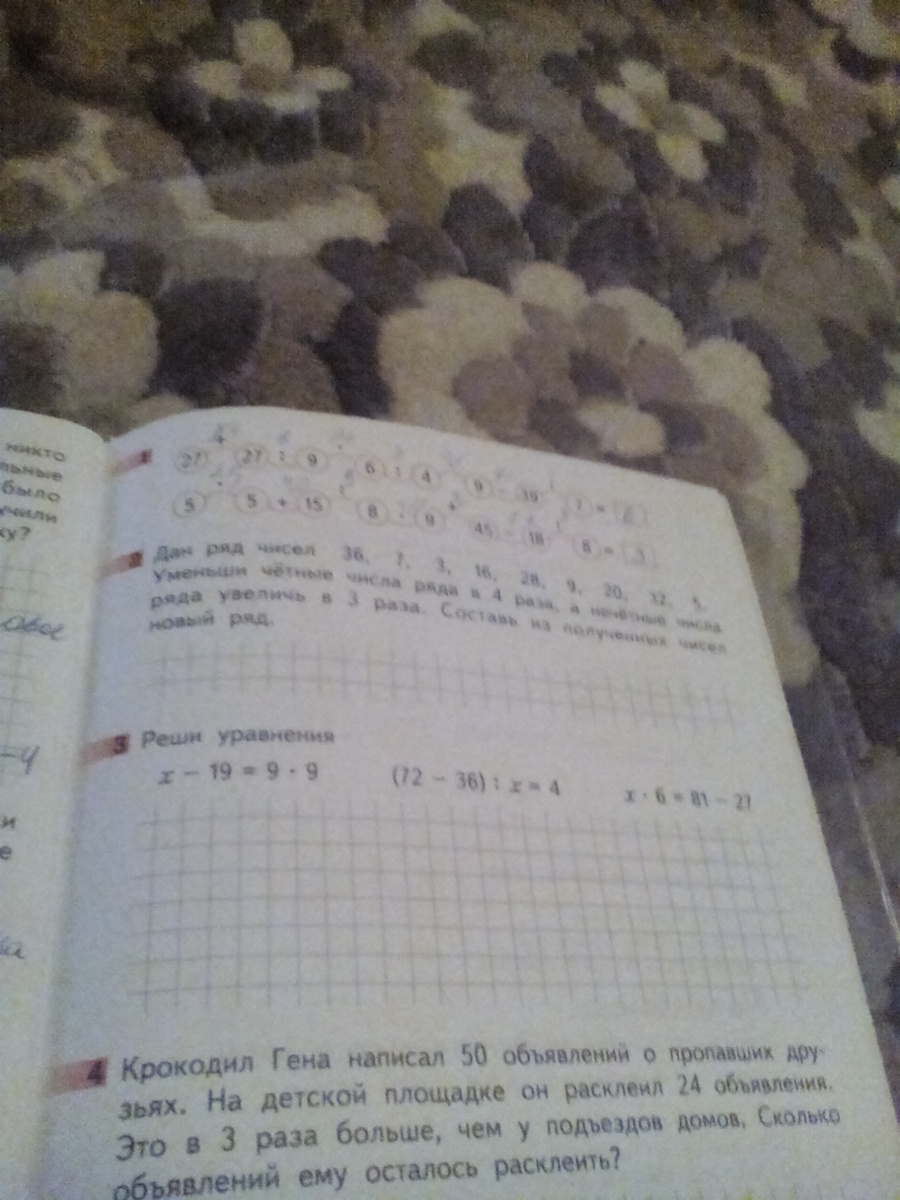 никто
льные
было
учили
ку?
овое
1
27 27 : 9 6 : 4 9 - 39
5 5 + 15 8 : 9 45 - 18 8 = 3
2 Дан ряд чисел 36, 7, 3, 16, 28, 9, 20, 32, 5.
Уменьши чётные числа ряда в 4 раза, а нечётные числа
ряда увеличь в 3 раза. Составь из полученных чисел
новый ряд.
3 Реши уравнения
x − 19 = 9 · 9 (72 − 36) : x = 4 x · 6 = 81 − 27
и
е
4 Крокодил Гена написал 50 объявлений о пропавших дру-
зьях. На детской площадке он расклеил 24 объявления.
Это в 3 раза больше, чем у подъездов домов. Сколько
объявлений ему осталось расклеить?